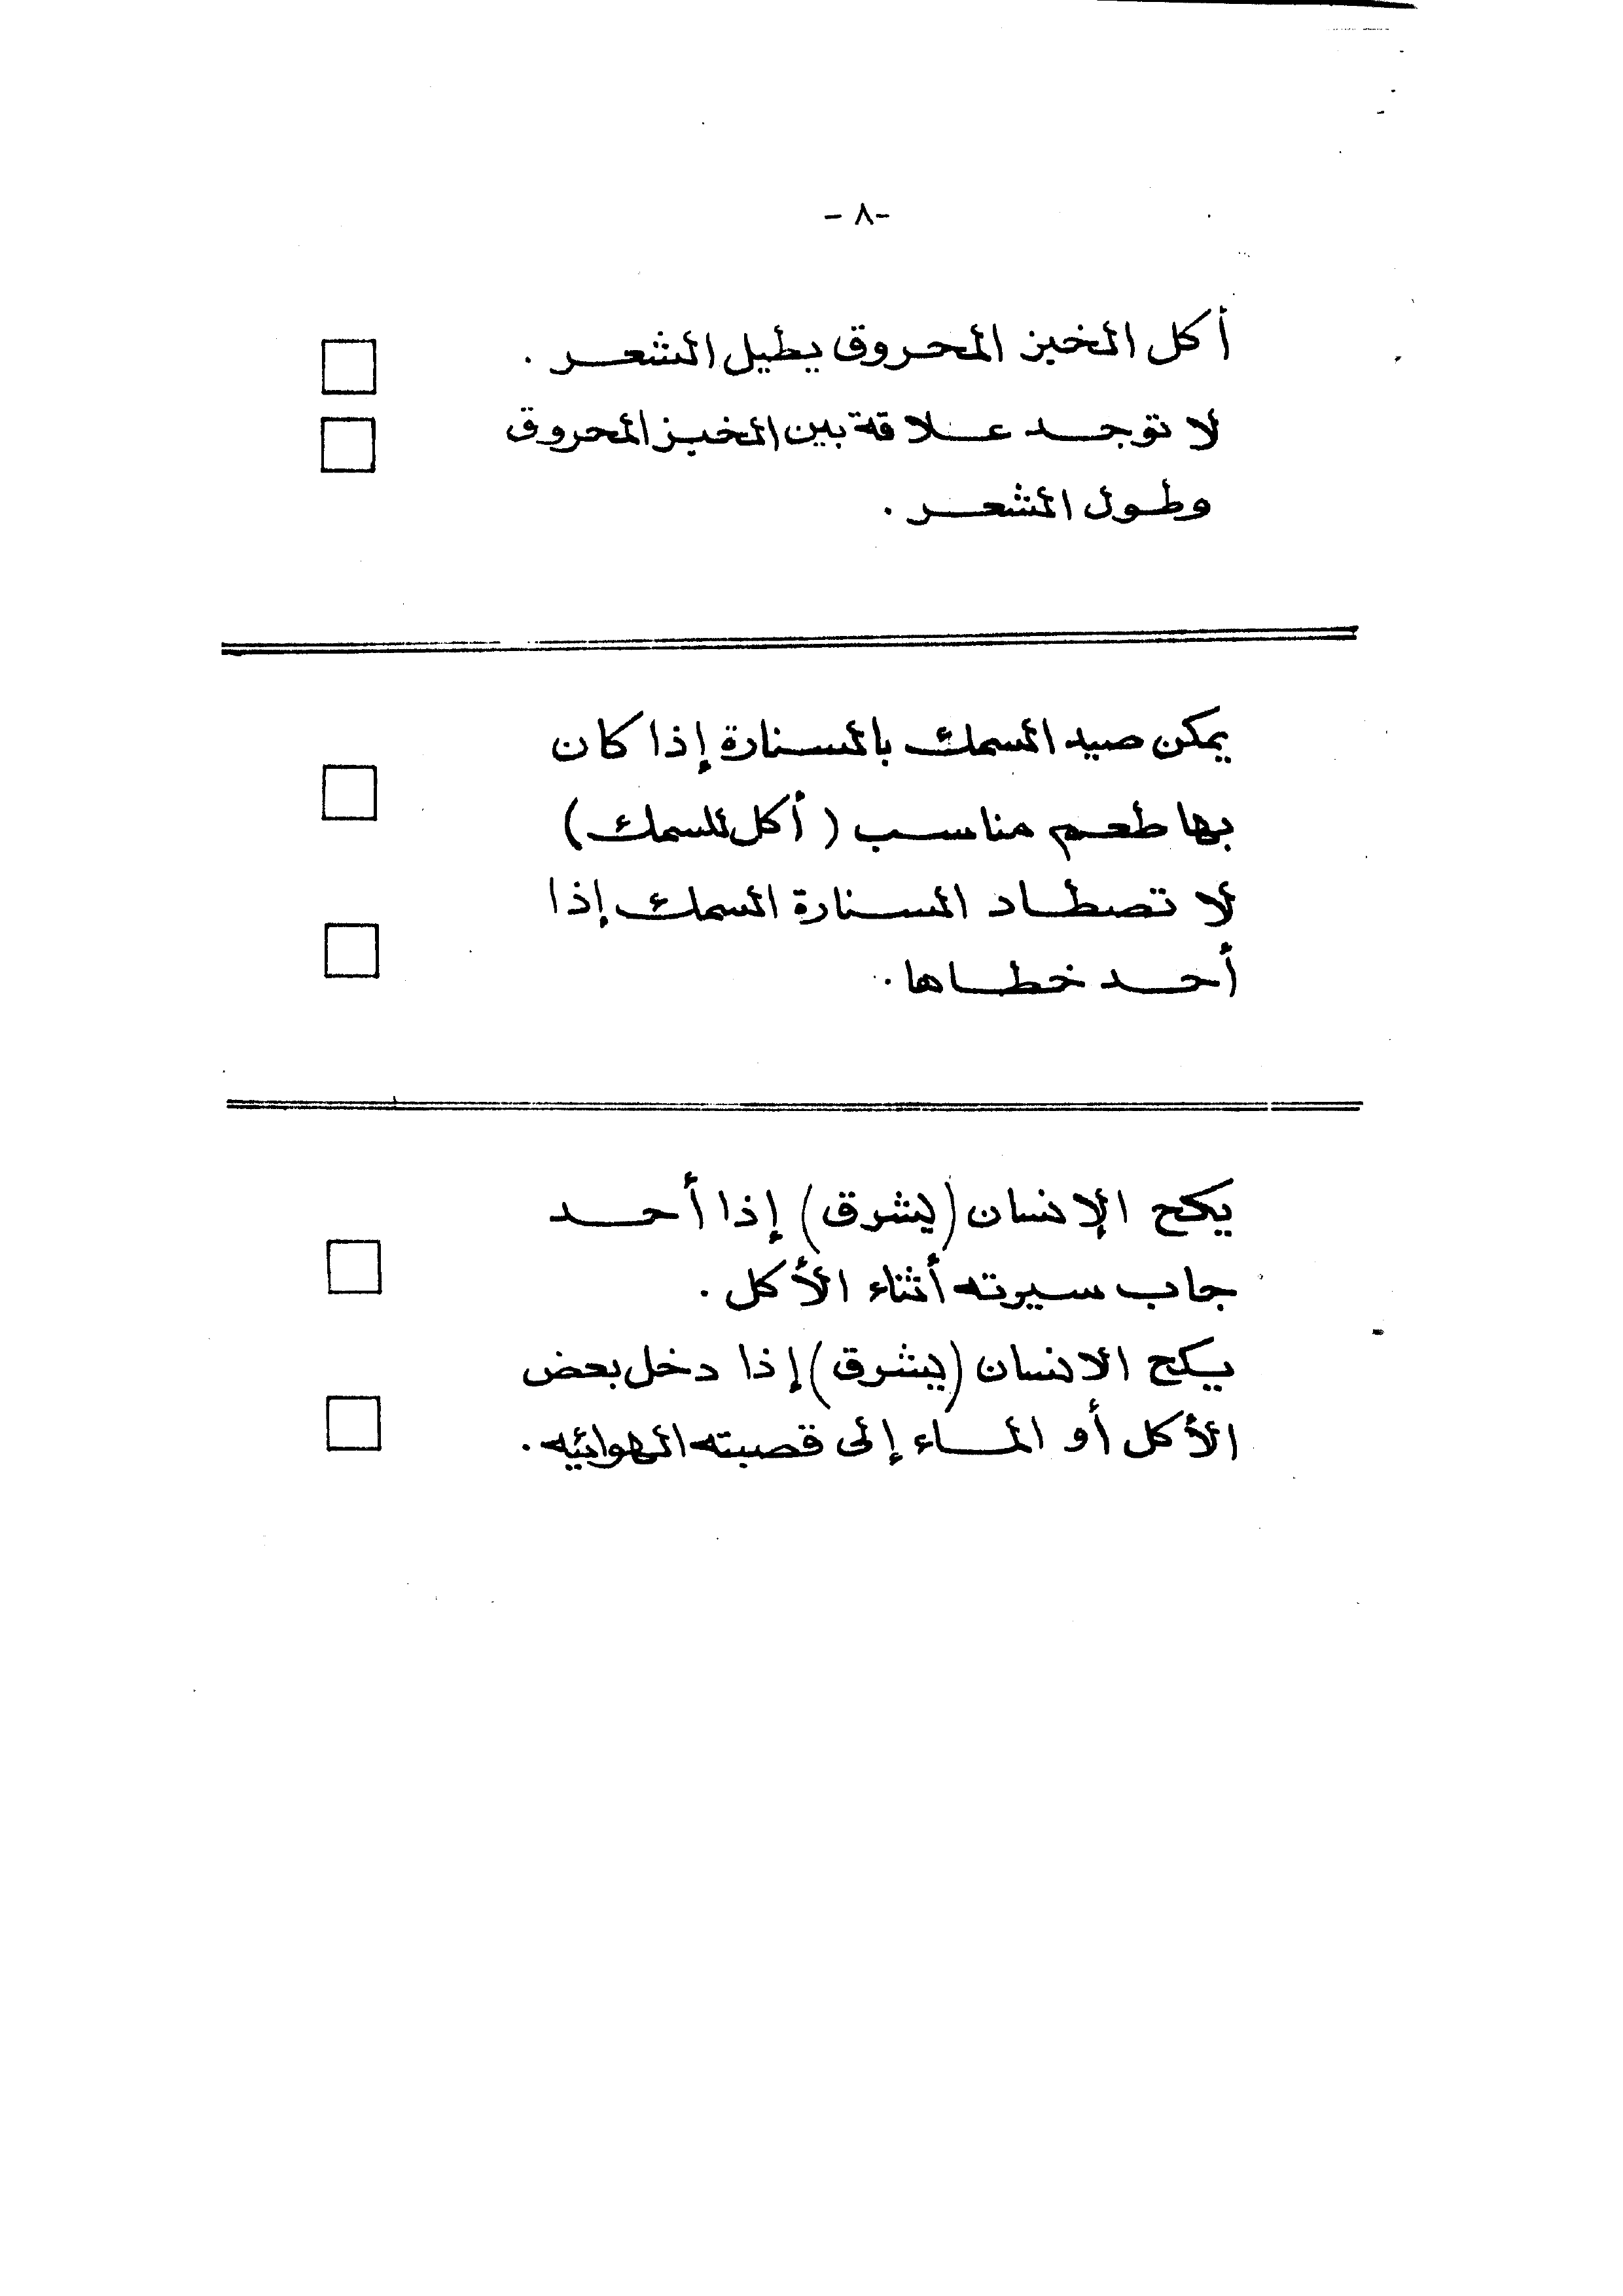 - ٨ -
أكل الخبز المحروق يطيل الشعر .
لا توجد علاقة بين الخبز المحروق
وطول الشعر .
يمكن صيد السمك بالسنارة إذا كان
بها طعم مناسب ( أكل للسمك )
لا تصطاد السنارة السمك إذا
أحد خطاها .
يكح الإنسان (يشرق) إذا أحد
جاب سيرته أثناء الأكل .
يكح الانسان (يشرق) إذا دخل بعض
الأكل أو الماء إلى قصبته الهوائيه .